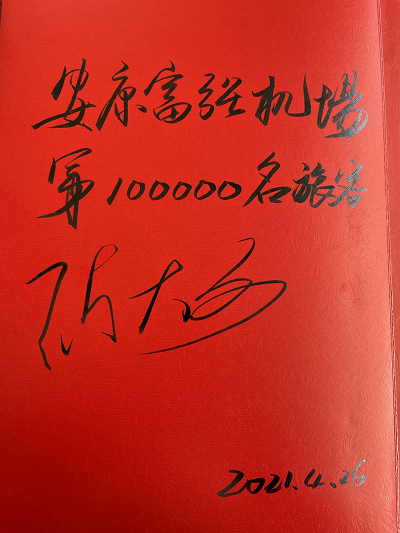 安康富强机場
第100000名旅客
2021.4.26